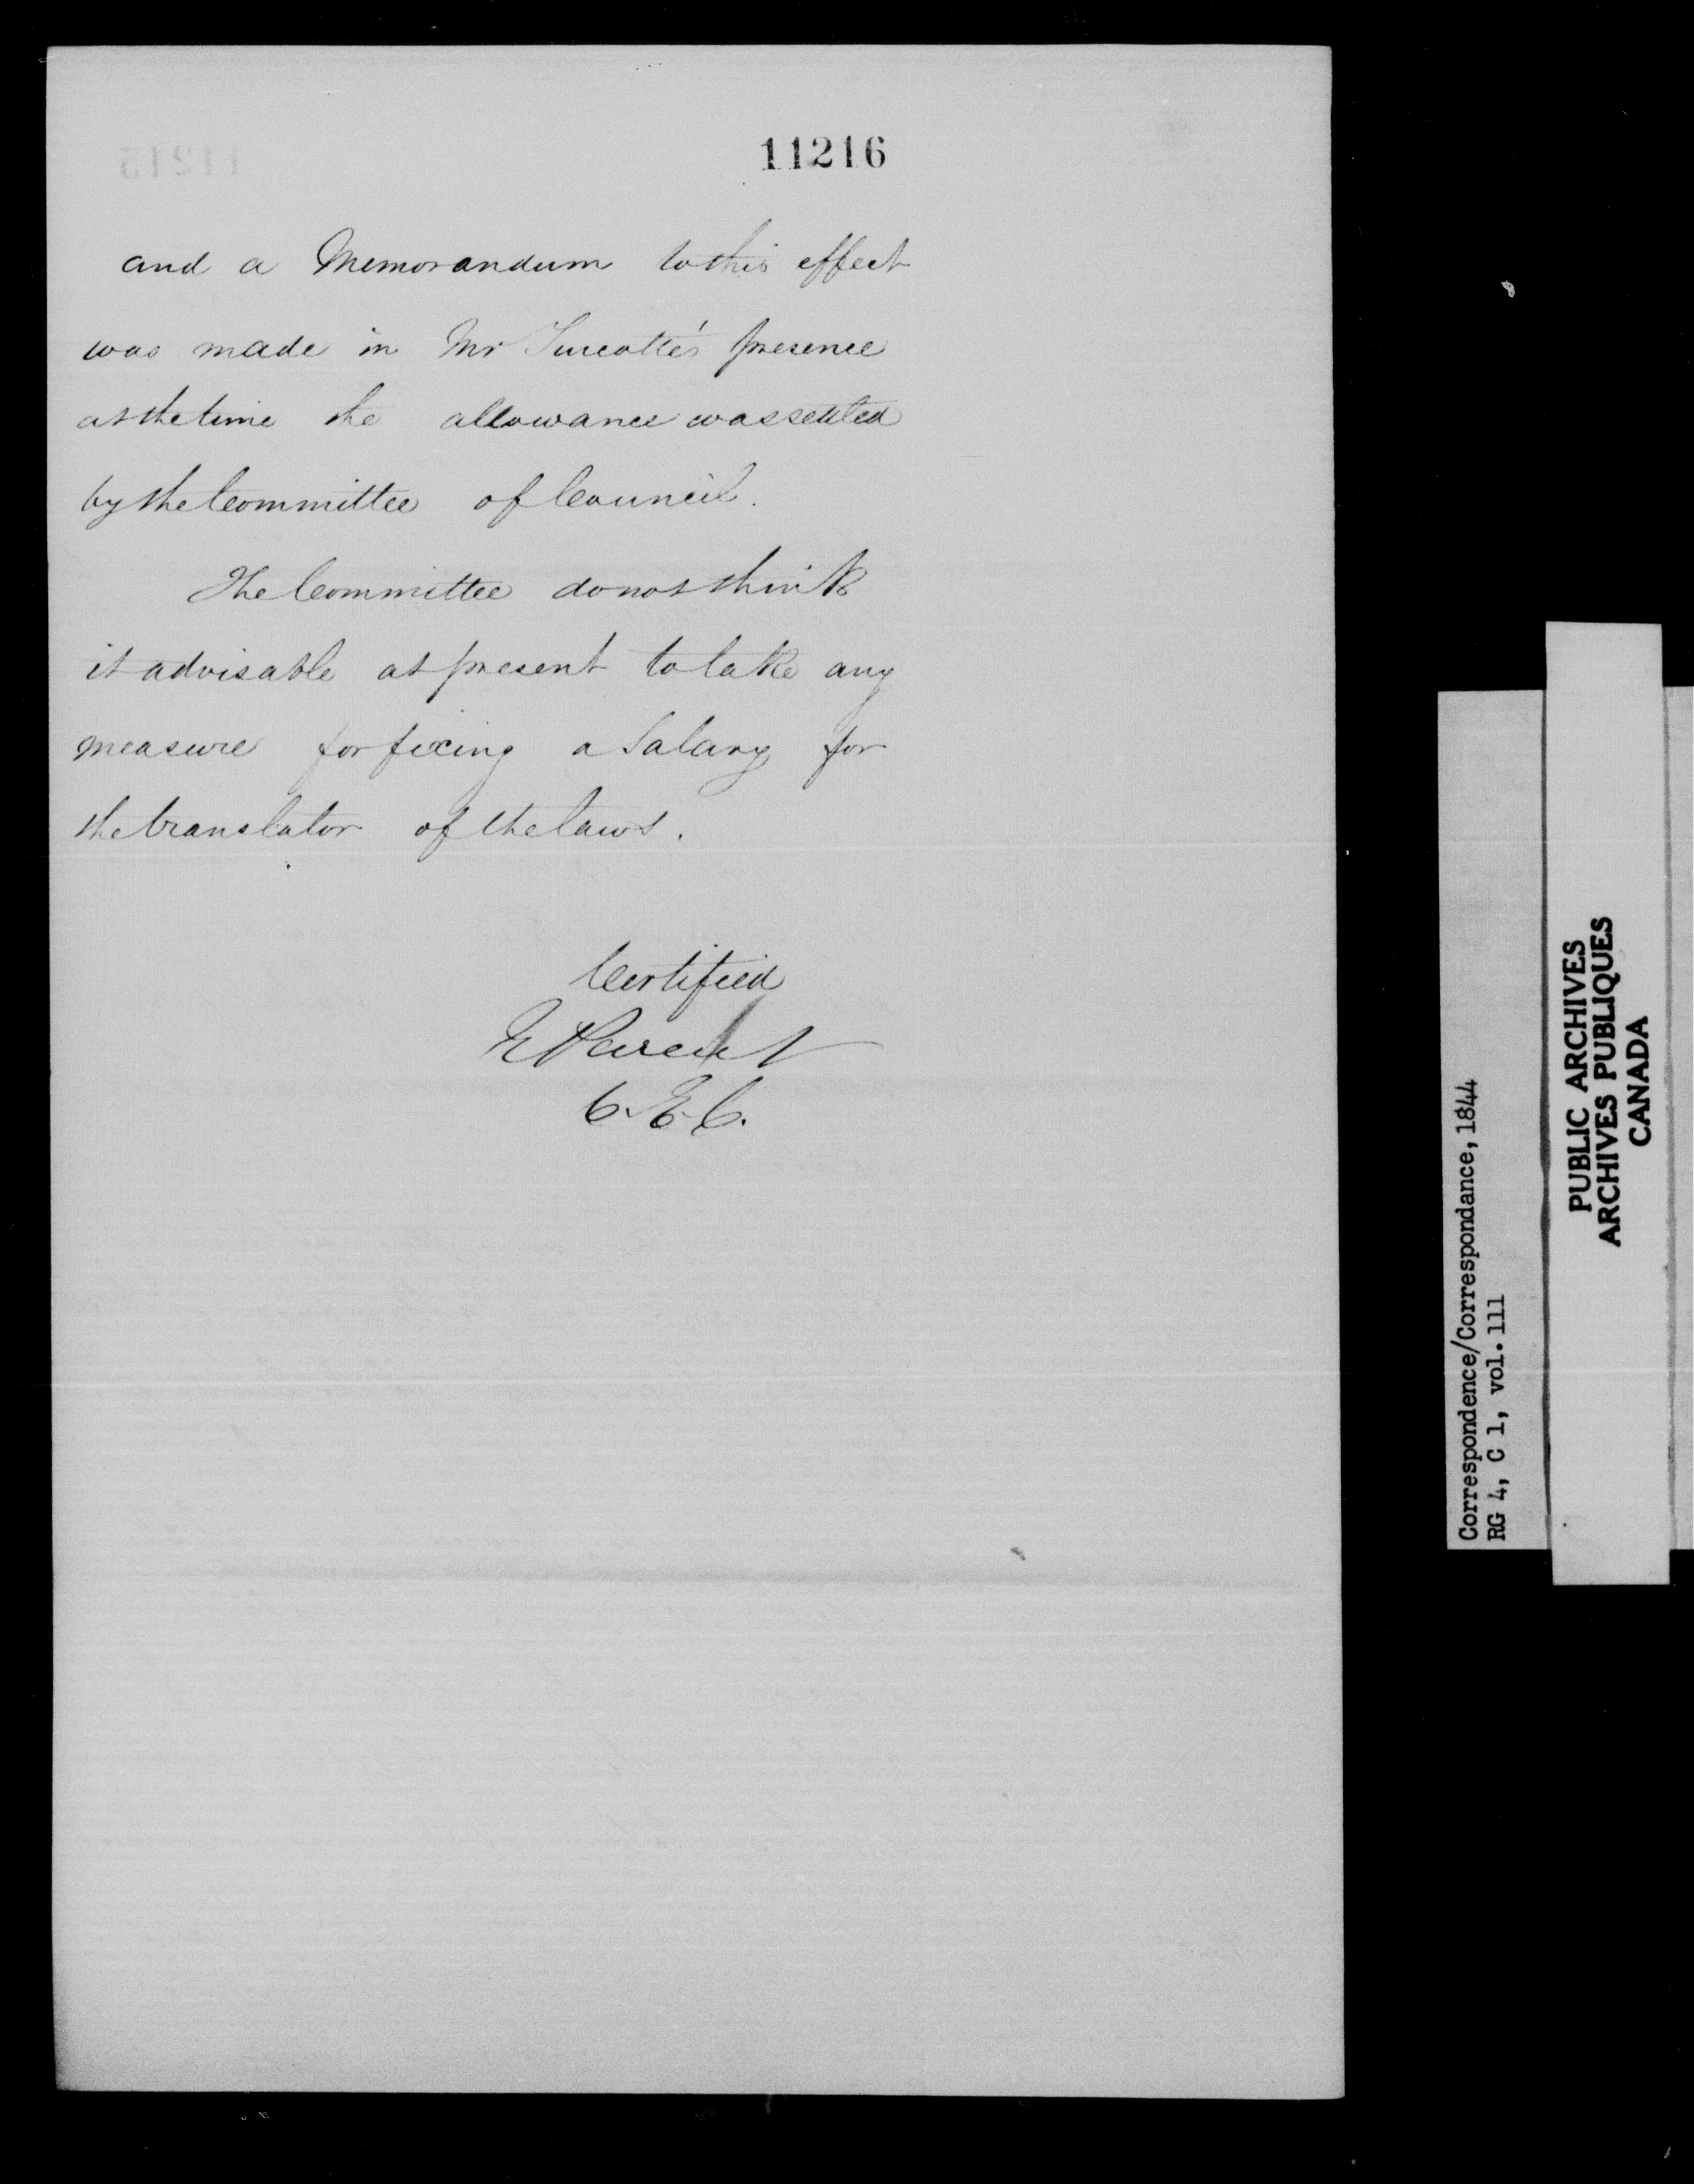 11216
and a Memorandum to this effect
was made in Mr Turcotte's presence
at the time the allowance was settled
by the Committee of Council.
The Committee do not think
it advisable at present to take any
measure for fixing a Salary for
the translator of the laws.
Certified
E Parent
C. E. C.
Correspondence/Correspondance, 1844
RG 4, C 1, vol. 111
PUBLIC ARCHIVES
ARCHIVES PUBLIQUES
CANADA